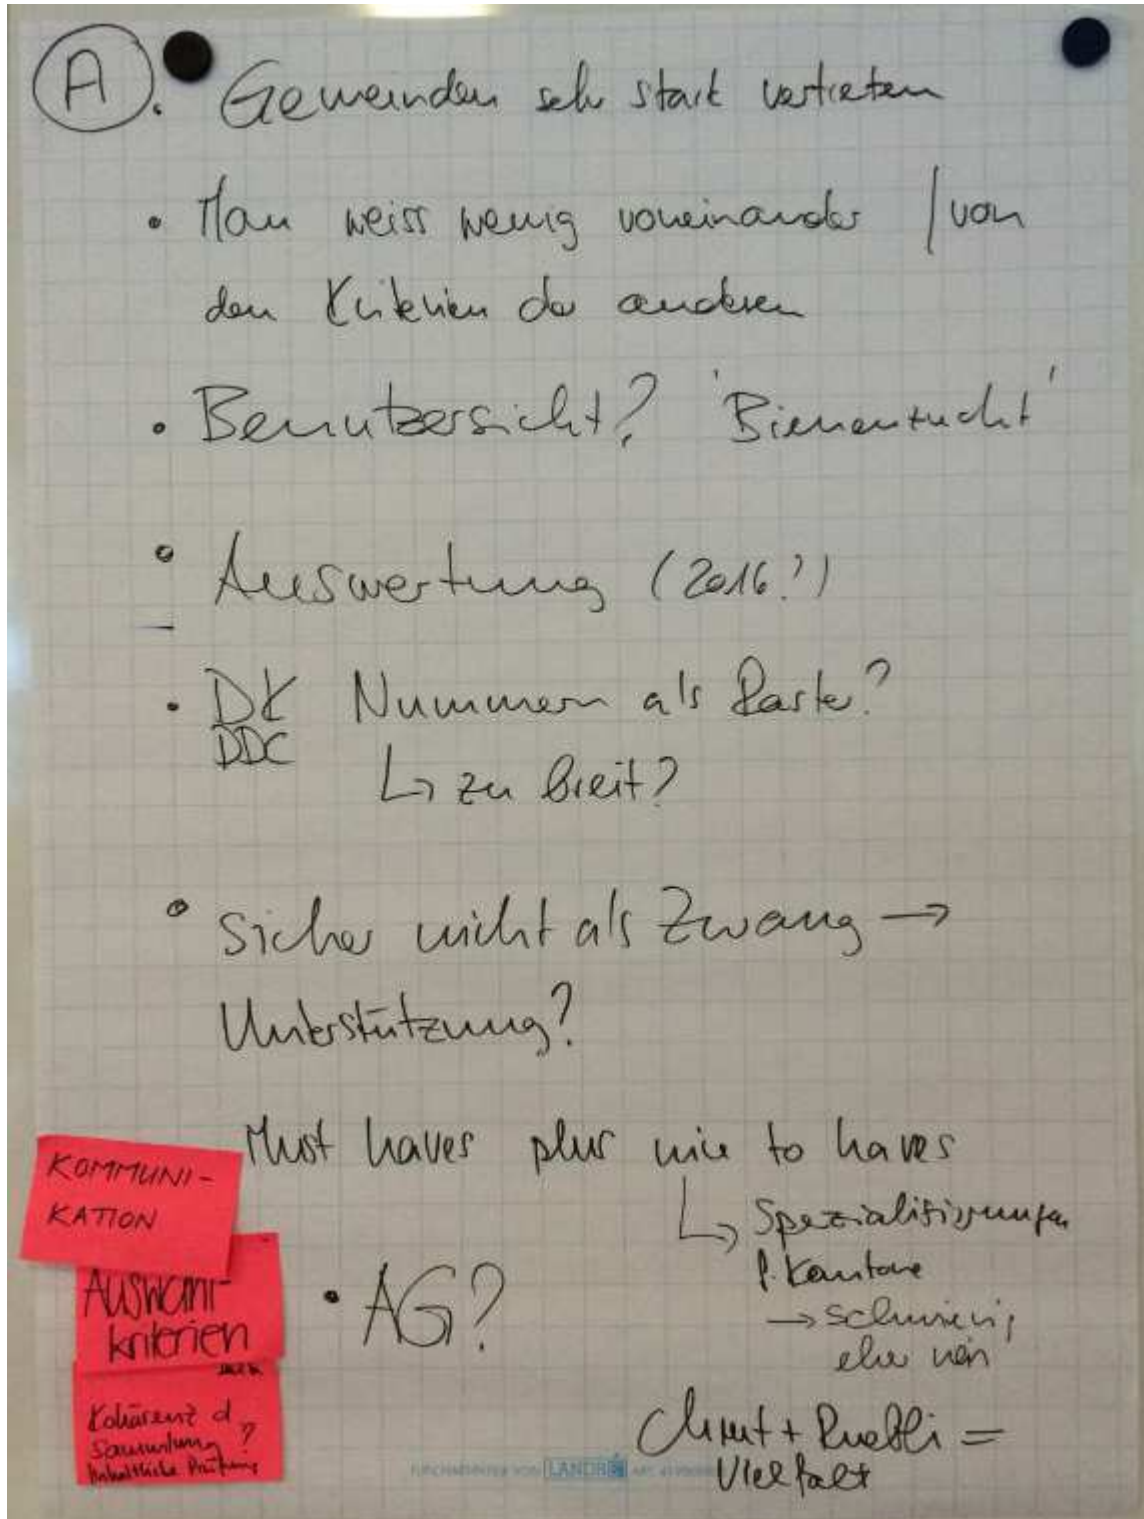 A
• Gemeinden sehr stark vertreten
• Man weiss wenig voneinander / von
den Kriterien der anderen
• Benutzersicht? 'Bienenzucht'
• Auswertung (2016?)
• DK Nummern als Raster?
DDC
↳ zu breit?
• Sicher nicht als Zwang →
Unterstützung?
Must haves plus nice to haves
↳ Spezialisierungen
f. Kantone
→ schwierig
eher nein
KOMMUNI-
KATION
AUSWAHL-
kriterien
• AG?
Kohärenz d.
Sammlung ?
Inhaltliche Prüfung
Chrut + Ruebli =
Vielfalt
LANDRÉ